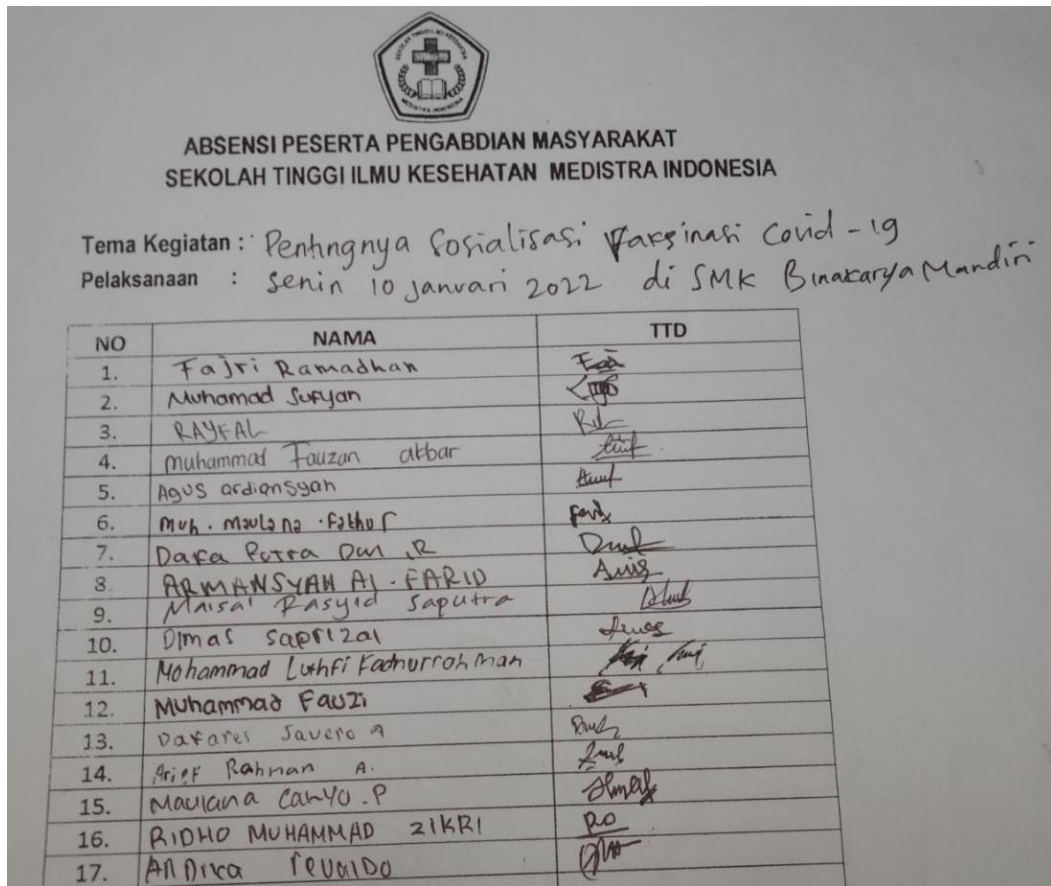 ABSENSI PESERTA PENGABDIAN MASYARAKAT
SEKOLAH TINGGI ILMU KESEHATAN MEDISTRA INDONESIA
Tema Kegiatan : Pentingnya Sosialisasi Vaksinasi Covid-19
Pelaksanaan : Senin 10 Januari 2022 di SMK Binakarya Mandiri
NO NAMA TTD
1. Fajri Ramadhan
2. Muhamad Sufyan
3. RAYFAL
4. Muhammad Fauzan akbar
5. Agus ardiansyah
6. Muh. Maulana . Fathur
7. Dafa Putra Dwi .R
8. ARMANSYAH Al - FARID
9. Rasyid Saputra
10. Dimas saprizal
11. Mohammad Luthfi Fathurrohman
12. Muhammad Fauzi
13. Dafarel Savero A
14. Arief Rahman A.
15. Maulana Cahyo . P
16. RIDHO MUHAMMAD ZIKRI
17. Andika revaldo